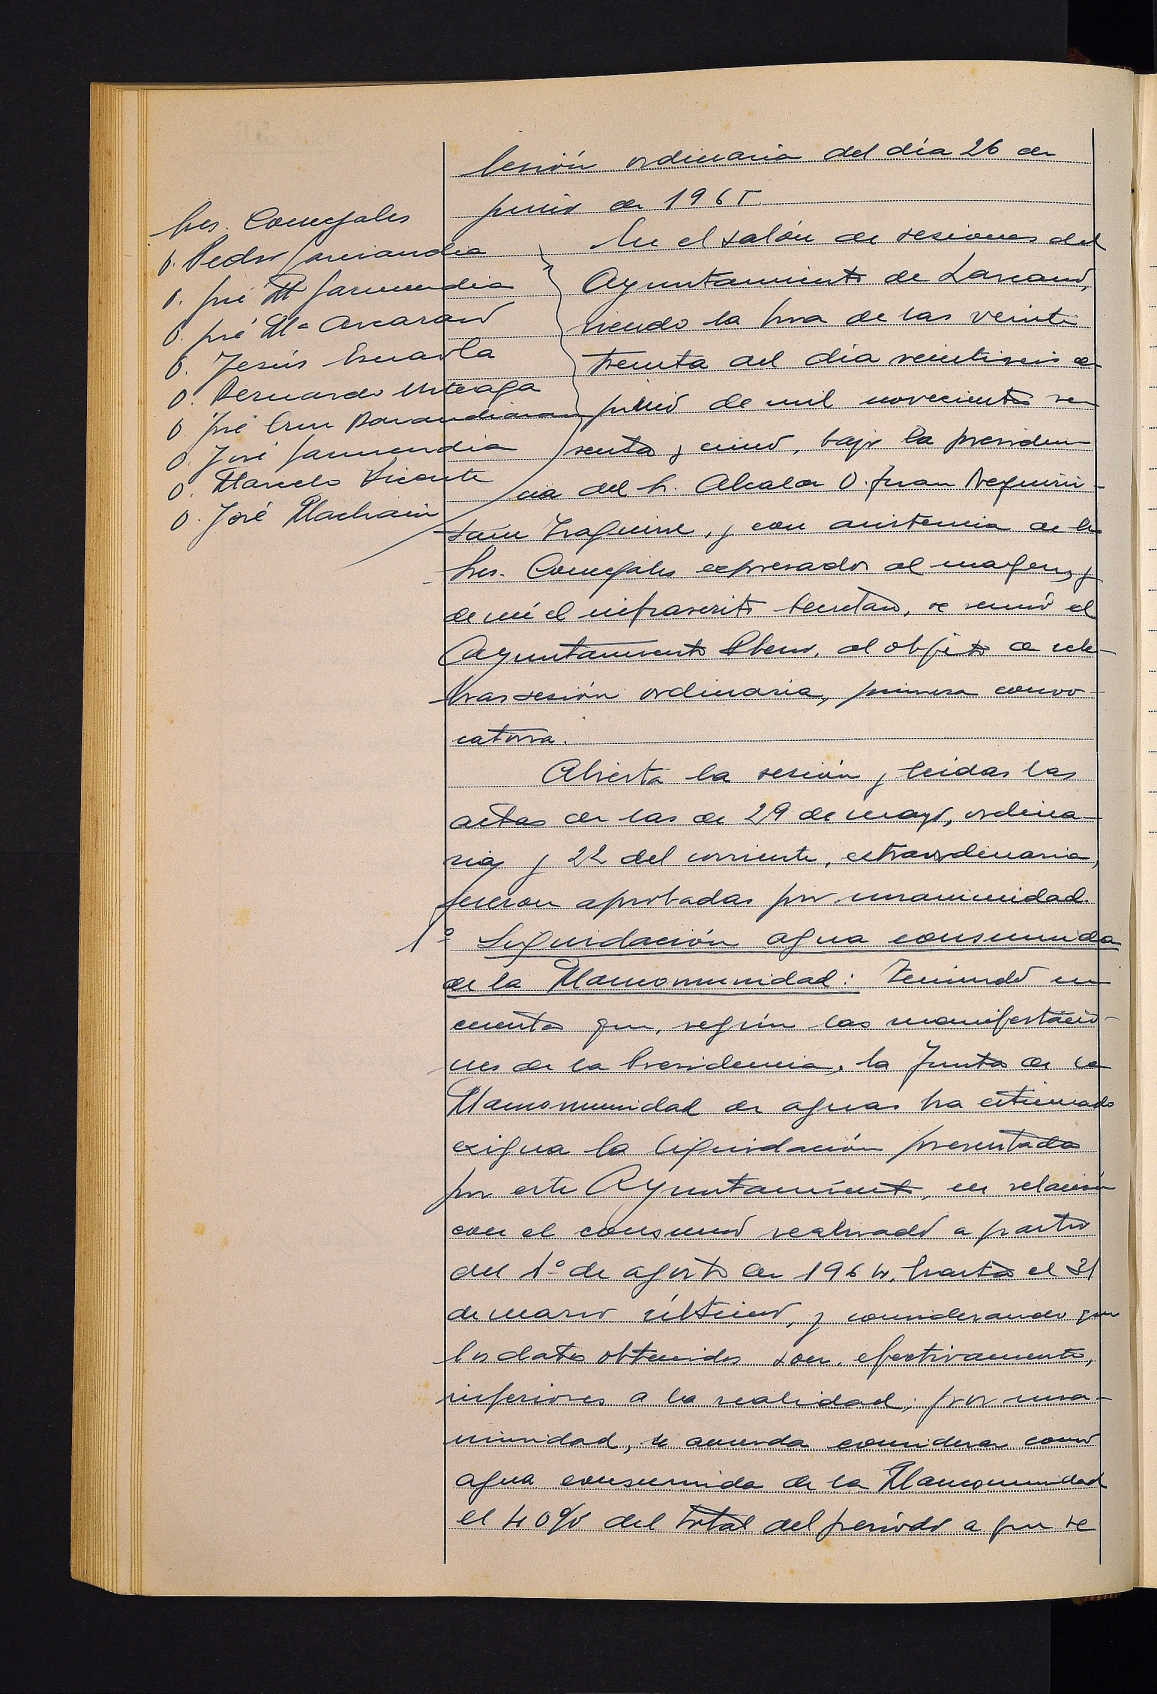 Sesión ordinaria del día 26 de
junio de 1965
Sres. Concejales
D. Pedro Garciandia
D. José Mª Garmendia
D. José Mª Ascarano
D. Jesús Esnaola
D. Bernardo Urteaga
D. José Cruz Barandiaran
D. José Garmendia
D. Marcelo Vicente
D. José Machain
En el salón de sesiones del
Ayuntamiento de Lazcano,
siendo la hora de las veinte
treinta del día veintiseis de
junio de mil novecientos se-
senta y cinco, bajo la presiden-
cia del Sr. Alcalde D. Juan
y con asistencia de los
Sres. Concejales expresados al margen, y
de mí el infrascrito Secretario, se reunió el
Ayuntamiento Pleno, al objeto de cele-
brar sesión ordinaria, primera convo-
catoria.
Abierta la sesión y leidas las
actas de las de 29 de mayo, ordina-
ria y 22 del corriente, extraordinaria,
fueron aprobadas por unanimidad.
1º Liquidación agua consumida
de la Mancomunidad: Teniendo en
cuenta que, según las manifestacio-
nes de la Presidencia, la Junta de la
Mancomunidad de aguas ha estimado
exigua la liquidación presentada
por este Ayuntamiento, en relación
con el consumo realizado a partir
del 1º de agosto de 1964, hasta el 31
de marzo último, y considerando que
los datos obtenidos son, efectivamente,
inferiores a la realidad; por una-
nimidad, se acuerda considerar como
agua consumida de la Mancomunidad
el 40% del total del período a que se